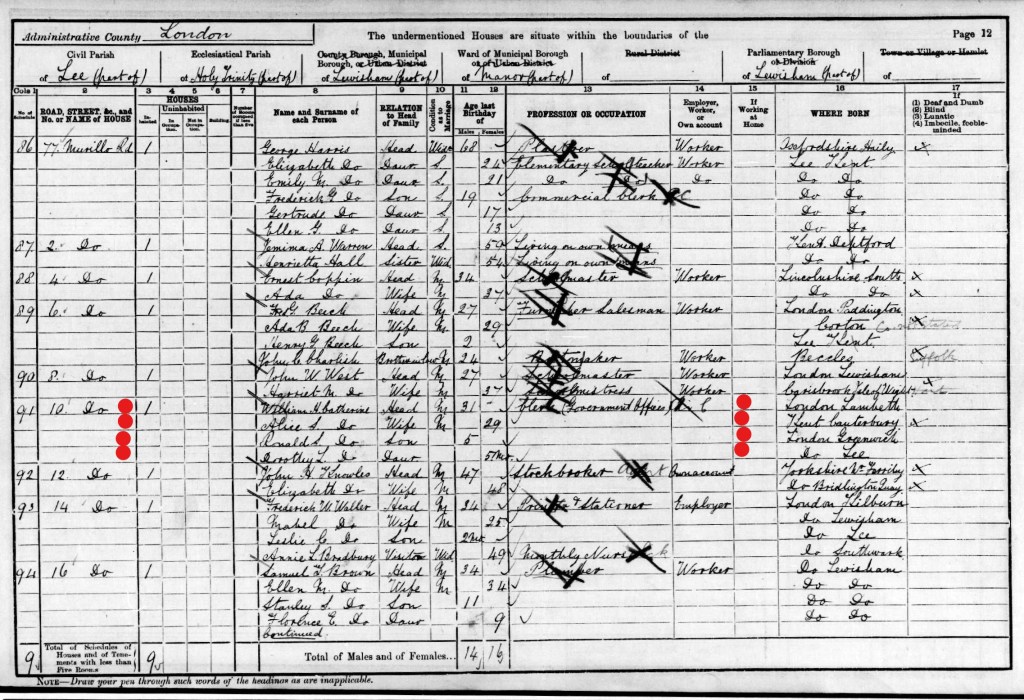 Administrative County London The undermentioned Houses are situate within the boundaries of the Page 12
Civil Parish Ecclesiastical Parish County Borough, Municipal Borough, or Urban District Ward of Municipal Borough or of Urban District Rural District Parliamentary Borough or Division Town or Village or Hamlet
of Lee (part of) of Holy Trinity (part of) of Lewisham (part of) of Manor (part of) of of Lewisham (part of) of
Cols 1 2 3 4 5 6 7 8 9 10 11 12 13 14 15 16 17
No. of Schedule ROAD, STREET, &c., and No. or NAME of HOUSE HOUSES Inhabited Uninhabited In Occupation. Not in Occupation. Building Number of Rooms occupied if less than five Name and Surname of each Person RELATION to Head of Family Condition as to Marriage Age last Birthday of Males Females PROFESSION OR OCCUPATION Employer, Worker, or Own account If Working at Home WHERE BORN If (1) Deaf and Dumb (2) Blind (3) Lunatic (4) Imbecile, feeble-minded
86 77 Murillo Rd 1 George Harris Head Wid 68 Plasterer Worker Oxfordshire Haily
Elizabeth Do Daur S. 24 Elementary School teacher Worker Lee Kent
Emily M. Do Daur S. 21 Do Do Do Do Do
Frederick G. Do Son S. 19 Commercial Clerk Do Do
Gertrude Do Daur S. 17 Do Do
Ellen G. Do Daur S. 13 Do Do
87 2 Do 1 Jemima A. Warren Head S. 59 Living on own means Kent Deptford
Henrietta Hall Sister Wid 54 Living on own means Do Do
88 4 Do 1 Ernest Coppin Head M 34 Schoolmaster Worker Lincolnshire South
Ada Do Wife M 37 Do Do
89 6 Do 1 Fredk G. Beech Head M 27 Salesman Worker London Paddington
Ada B Beech Wife M 29 Corton
Henry G. Beech Son 2 Lee Kent
John C Charlish Brother in law 24 Bootmaker Worker Beccles Suffolk
90 8 Do 1 John W. West Head M 27 Schoolmaster Worker London Lewisham
Harriet M. Do Wife M 37 Schoolmistress Worker Carisbrook Isle of Wight
91 10 Do 1 William H. Catherine Head M 31 Clerk (Government Offices) London Lambeth
Alice S. Do Wife M 29 Kent Canterbury
Ronald S. Do Son 5 London Greenwich
Dorothy L. Do Daur 5 mo Do Lee
92 12 Do 1 John H Knowles Head M 47 Stockbroker Own account Yorkshire Wn Ferriby
Elizabeth Do Wife M 48 Do Bridlington Quay
93 14 Do 1 Frederick W. Walter Head M 34 Printer & Stationer Employer London Kilburn
Mabel Do Wife M 25 Do Lewisham
Leslie C. Do Son 2 mo Do Lee
Annie L. Bradbury Visitor Wid 49 Monthly Nurse Do Southwark
94 16 Do 1 Samuel F. Brown Head M 34 Plumber Worker Do Lewisham
Ellen M. Do Wife M 34 Do Do
Stanley S. Do Son 11 Do Do
Florence E. Do Daur 9 Do Do
continued
9 Total of Schedules of Houses and of Tenements with less than Five Rooms 9 Total of Males and of Females... 14 16
NOTE—Draw your pen through such words of the headings as are inapplicable.